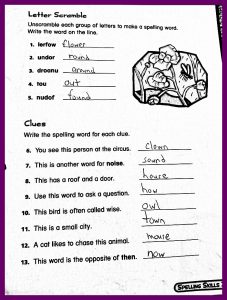 Letter Scramble
Unscramble each group of letters to make a spelling word.
Write the word on the line.
1. lerfow flower
2. undor round
3. droanu around
4. tou out
5. nudof found
Clues
Write the spelling word for each clue.
6. You see this person at the circus. clown
7. This is another word for noise. sound
8. This has a roof and a door. house
9. Use this word to ask a question. how
10. This bird is often called wise. owl
11. This is a small city. town
12. A cat likes to chase this animal. mouse
13. This word is the opposite of then. now
Spelling Skills